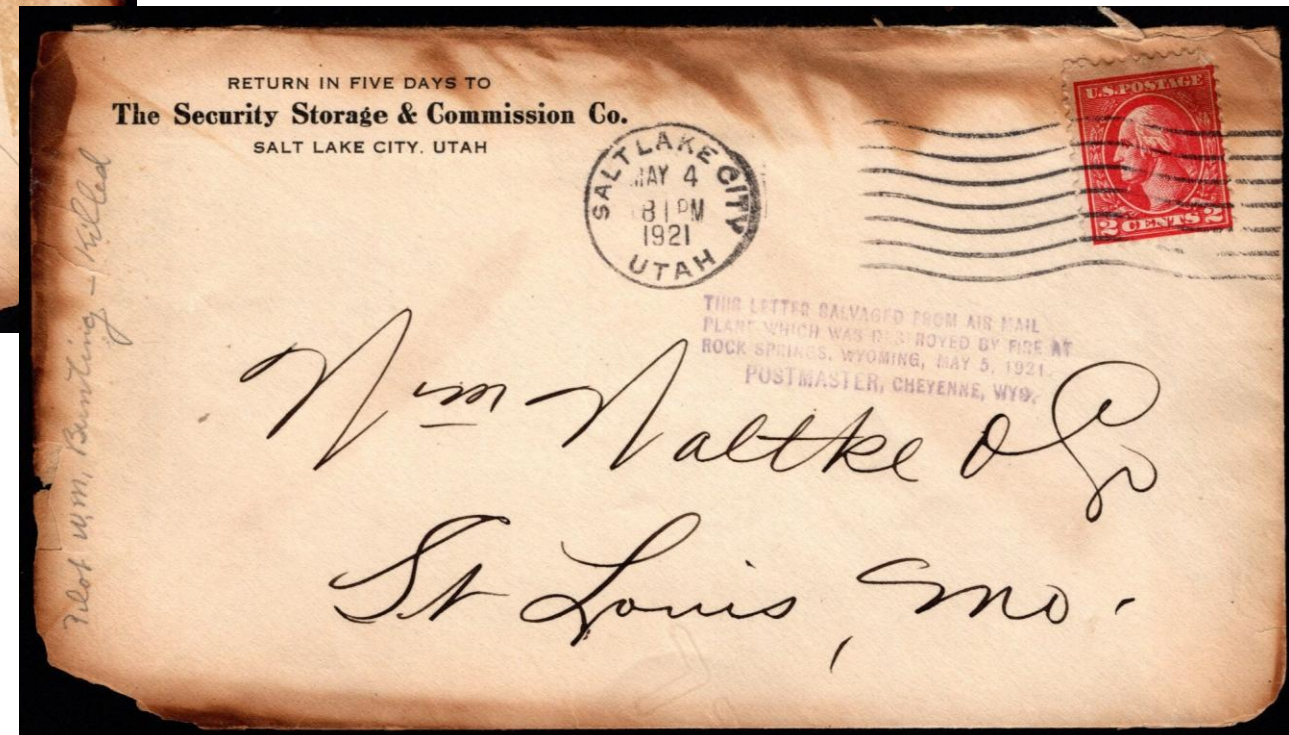 RETURN IN FIVE DAYS TO
The Security Storage & Commission Co.
SALT LAKE CITY, UTAH
SALT LAKE CITY
MAY 4
81 PM
1921
UTAH
U.S. POSTAGE
2 CENTS 2
THIS LETTER SALVAGED FROM AIR MAIL
PLANE WHICH WAS DESTROYED BY FIRE AT
ROCK SPRINGS, WYOMING, MAY 5, 1921.
POSTMASTER, CHEYENNE, WYO.
Wm Waltke & Co
St Louis, Mo.
Pilot Wm, Bunting - Killed